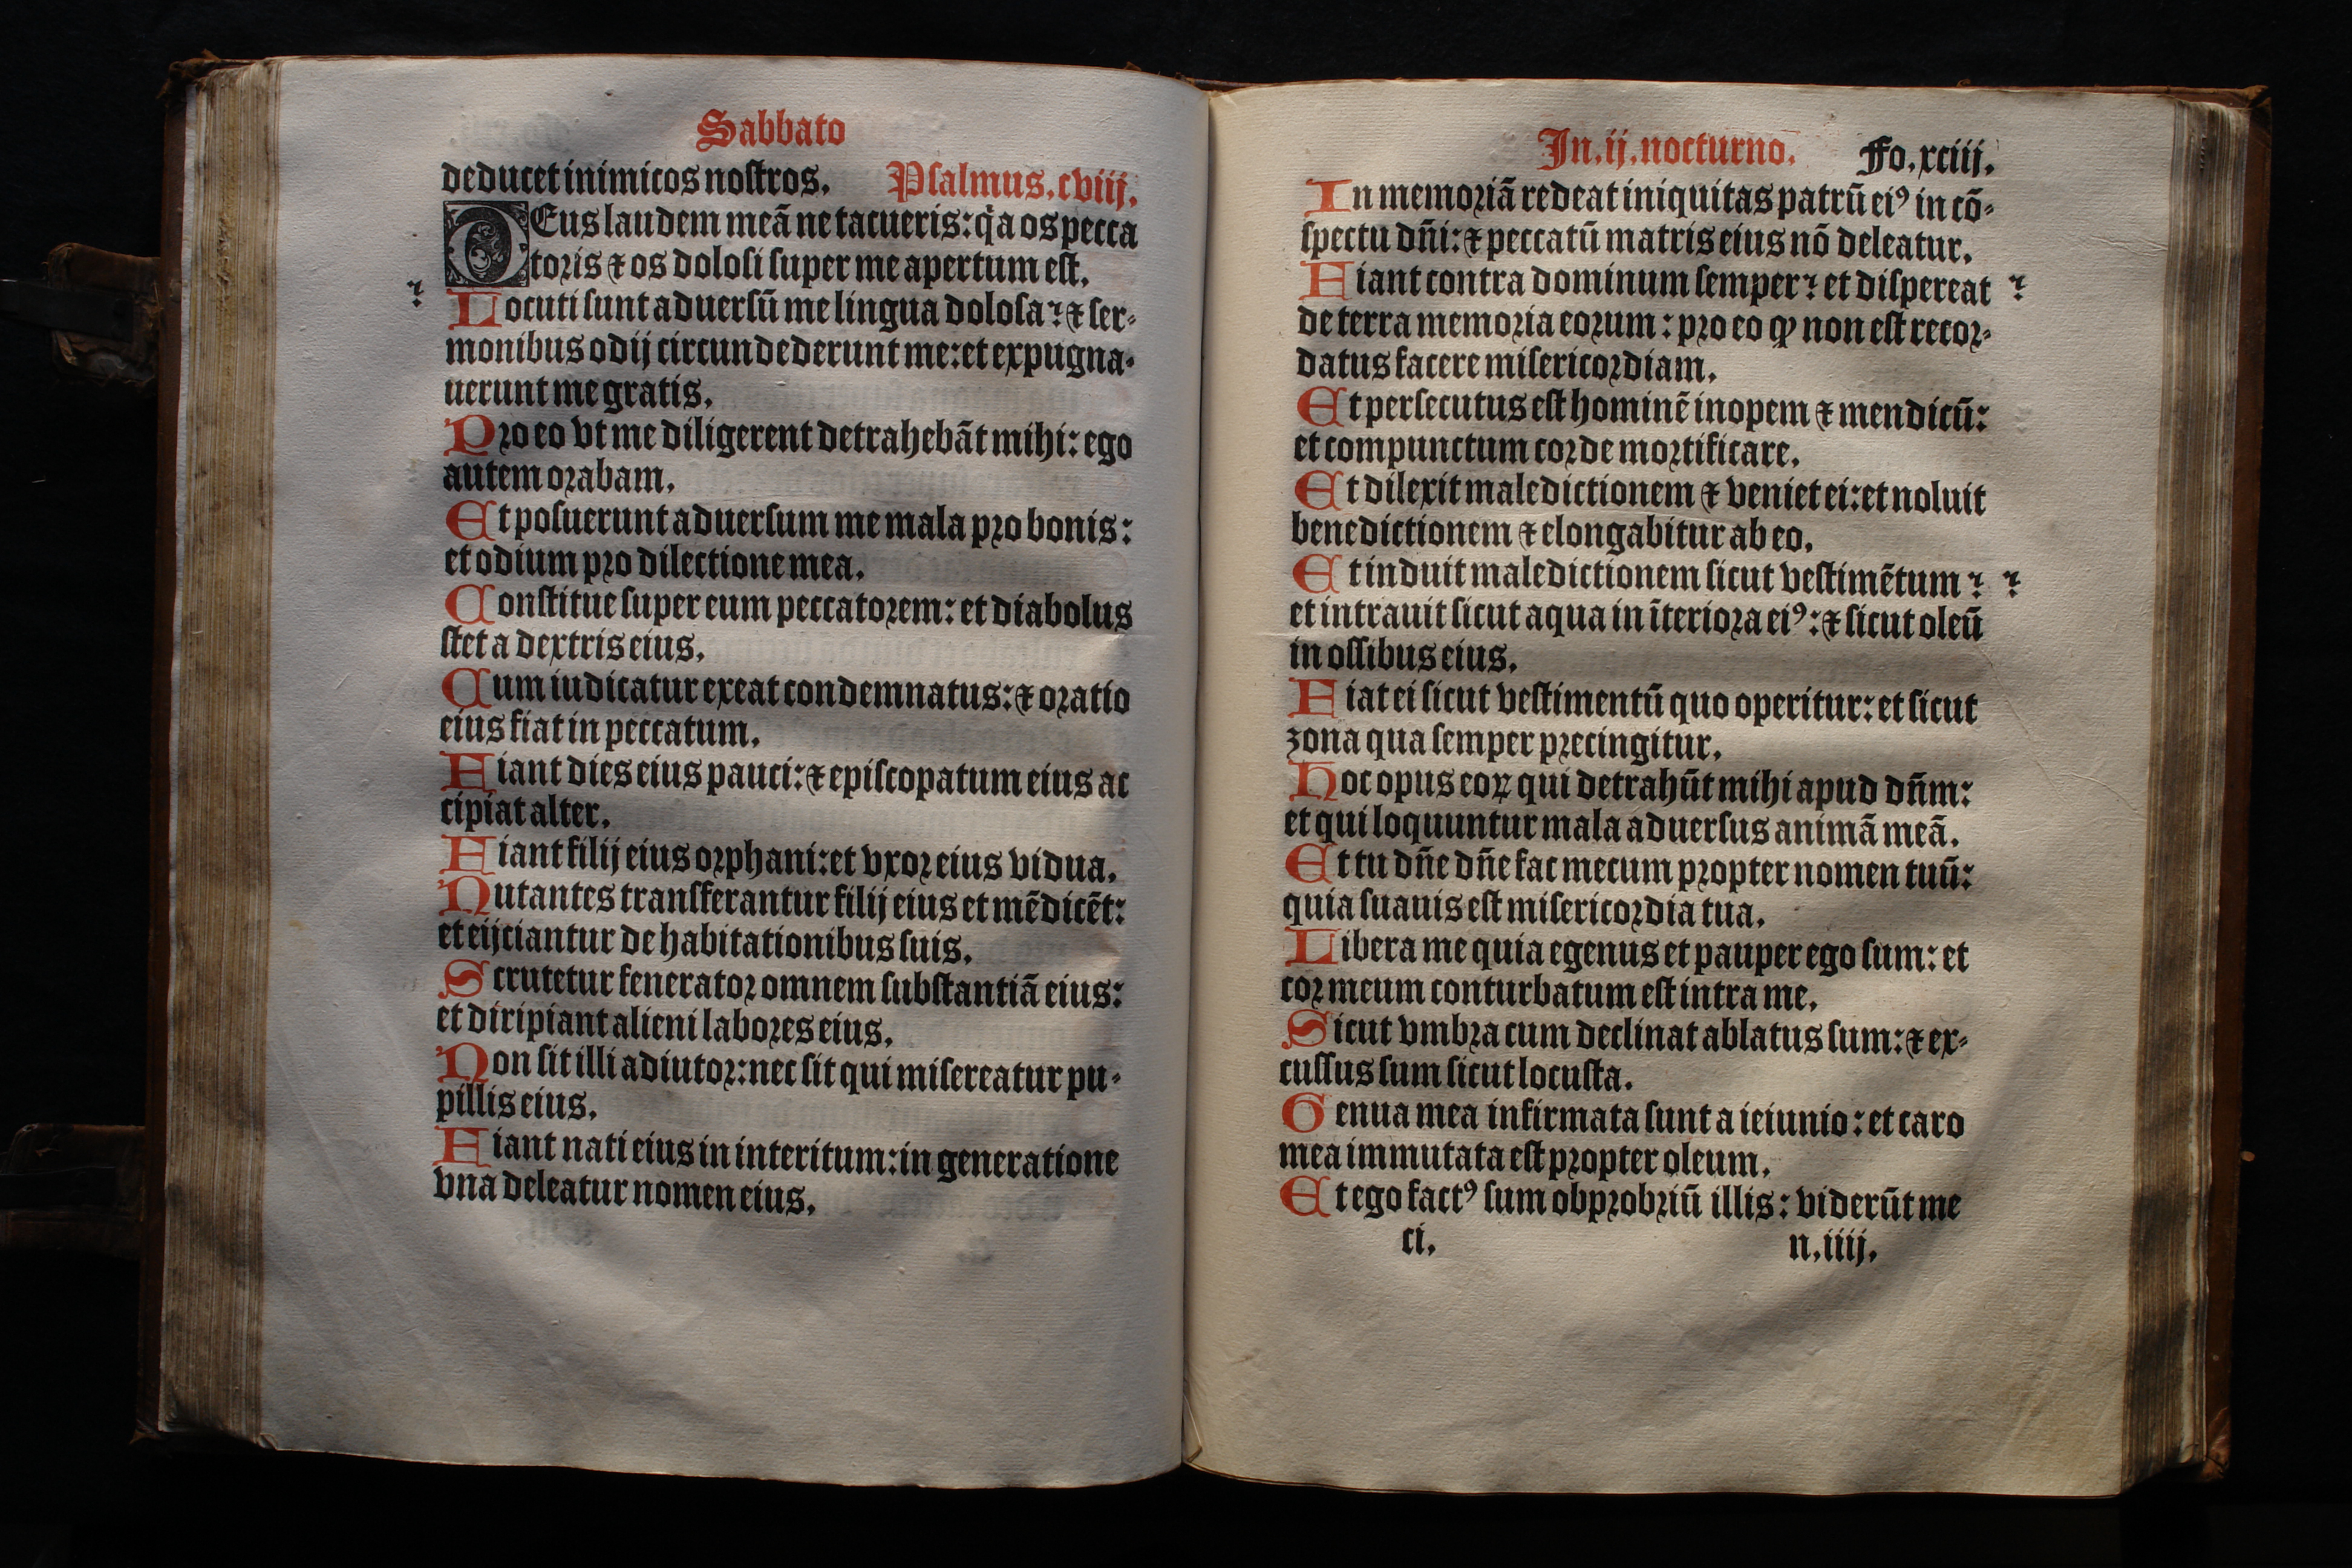 Sabbato
deducet inimicos nostros. Psalmus.cviij.
DEus laudem meā ne tacueris: q̇a os pecca
toris ⁊ os dolosi super me apertum est.
Locuti sunt aduersū me lingua dolosa? ⁊ ser-
monibus odij circundederunt me: et expugna-
uerunt me gratis.
Pro eo vt me diligerent detrahebāt mihi: ego
autem orabam.
Et posuerunt aduersum me mala pro bonis:
et odium pro dilectione mea.
Constitue super eum peccatorem: et diabolus
stet a dextris eius.
Cum iudicatur exeat condemnatus: ⁊ oratio
eius fiat in peccatum.
Fiant dies eius pauci: ⁊ episcopatum eius ac
cipiat alter.
Fiant filij eius orphani: et vxor eius vidua.
Nutantes transferantur filij eius et mēdicēt:
et eijciantur de habitationibus suis.
Scrutetur fenerator omnem substantiā eius:
et diripiant alieni labores eius.
Non sit illi adiutor: nec sit qui misereatur pu-
pillis eius.
Fiant nati eius in interitum: in generatione
vna deleatur nomen eius.
In.ij.nocturno. Fo.xciij.
In memoriā redeat iniquitas patrū eiꝰ in cō-
spectu dn̄i: ⁊ peccatū matris eius nō deleatur.
Fiant contra dominum semper? et dispereat ?
de terra memoria eorum: pro eo ꝙ non est recor-
datus facere misericordiam.
Et persecutus est hominē inopem ⁊ mendicū:
et compunctum corde mortificare.
Et dilexit maledictionem ⁊ veniet ei: et noluit
benedictionem ⁊ elongabitur ab eo.
Et induit maledictionem sicut vestimētum? ?
et intrauit sicut aqua in īteriora eiꝰ: ⁊ sicut oleū
in ossibus eius.
Fiat ei sicut vestimentū quo operitur: et sicut
zona qua semper precingitur.
Hoc opus eoꝝ qui detrahūt mihi apud dn̄m:
et qui loquuntur mala aduersus animā meā.
Et tu dn̄e dn̄e fac mecum propter nomen tuū:
quia suauis est misericordia tua.
Libera me quia egenus et pauper ego sum: et
cor meum conturbatum est intra me.
Sicut vmbra cum declinat ablatus sum: ⁊ ex-
cussus sum sicut locusta.
Genua mea infirmata sunt a ieiunio: et caro
mea immutata est propter oleum.
Et ego factꝰ sum obprobriū illis: viderūt me
ci. n.iiij.